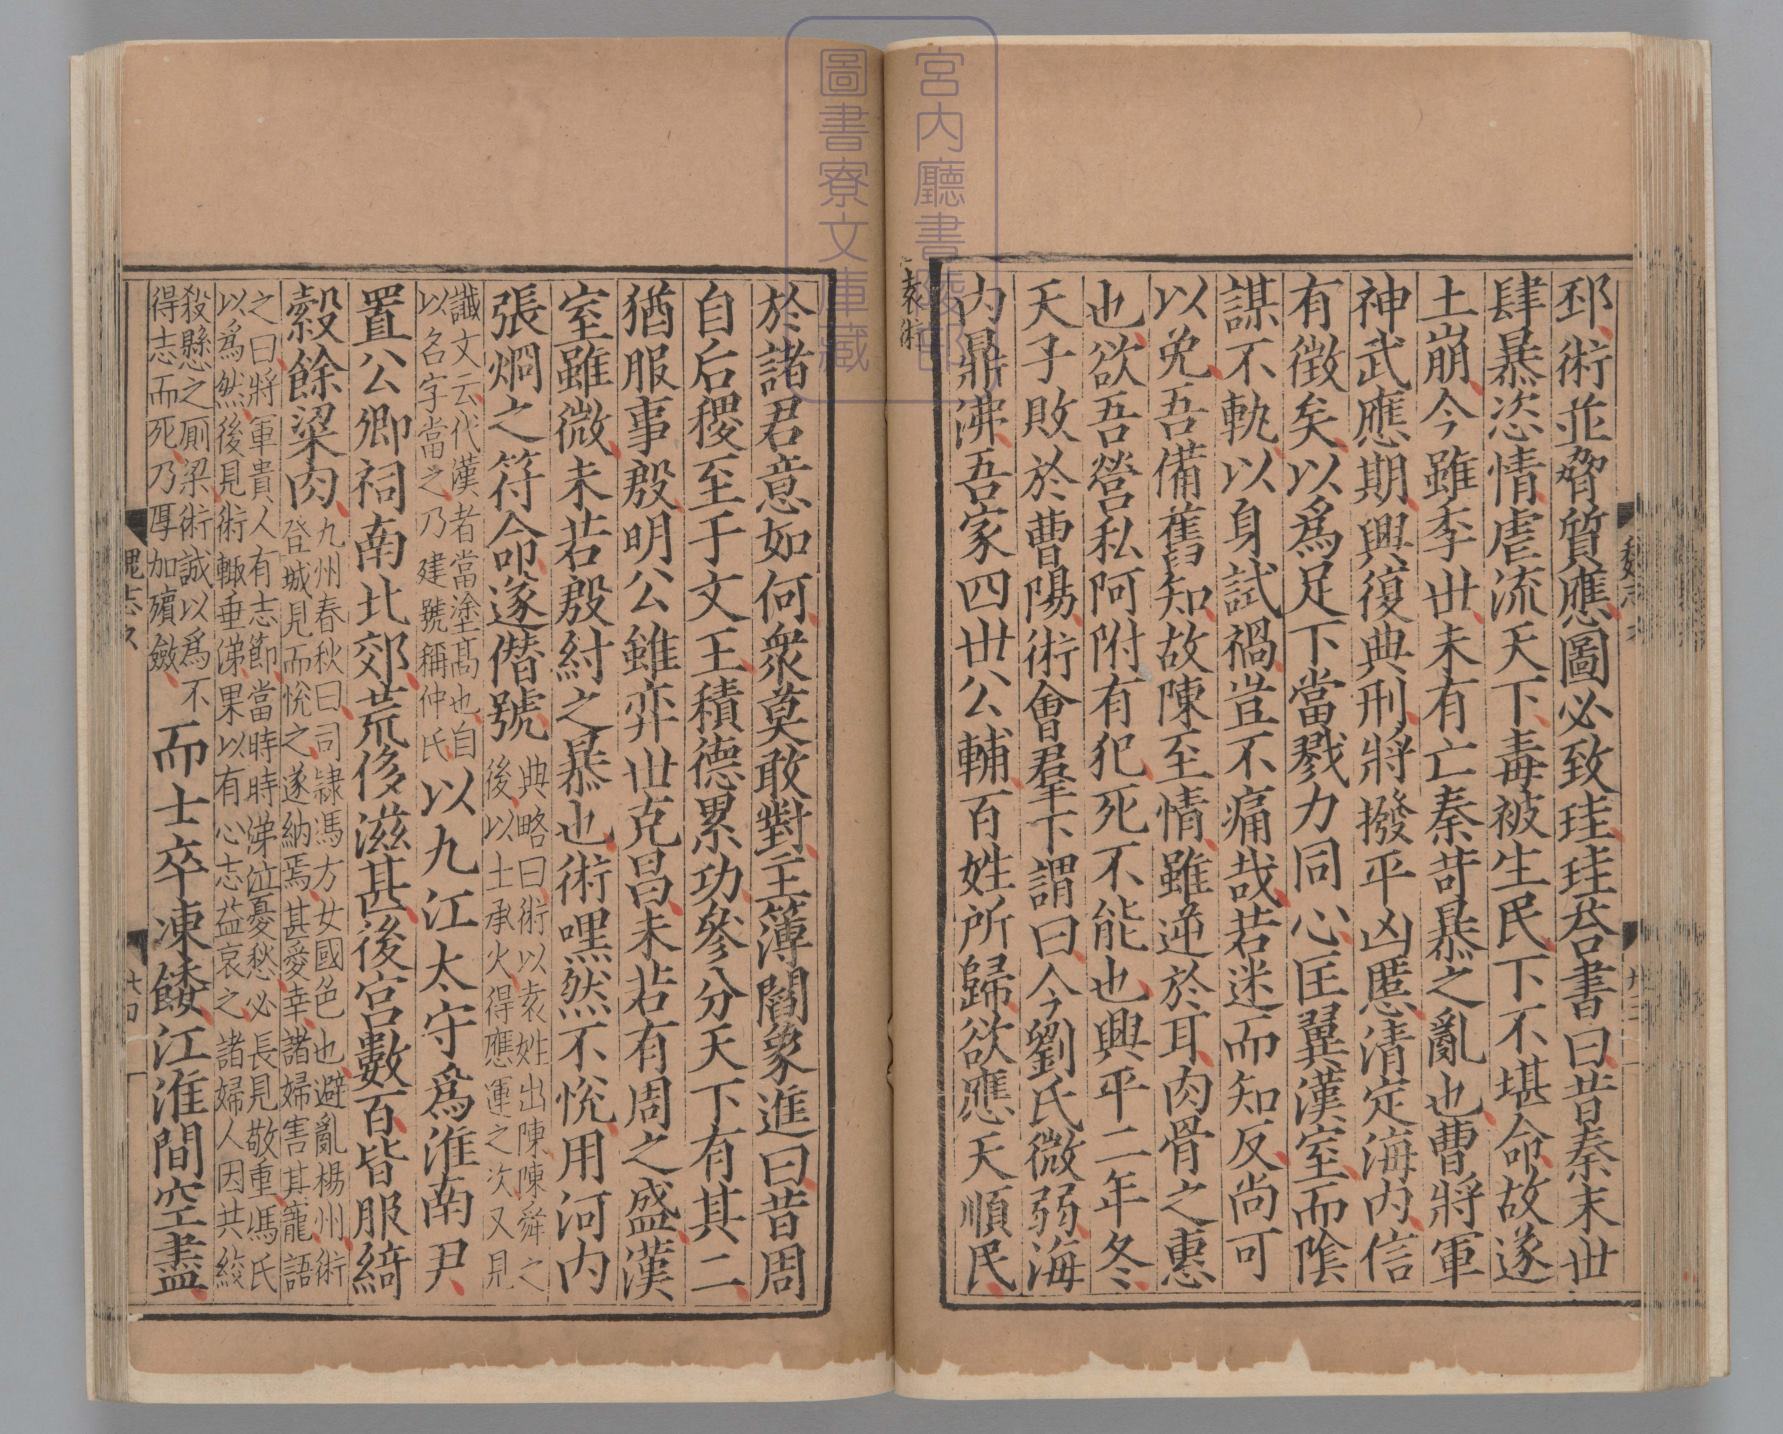 邳術並脅質應圖必致珪珪荅書曰昔秦末世
肆暴恣情虐流天下毒被生民下不堪命故遂
土崩今雖季世未有亡秦苛暴之亂也曹將軍
神武應期興復典刑將撥平凶慝清定海內信
有徵矣以爲足下當戮力同心匡翼漢室而陰
謀不軌以身試禍豈不痛哉若迷而知反尚可
以免吾備舊知故陳至情雖逆於耳肉骨之惠
也欲吾營私阿附有犯死不能也興平二年冬
天子敗於曹陽術會羣下謂曰今劉氏微弱海
內鼎沸吾家四世公輔百姓所歸欲應天順民
袁術
於諸君意如何衆莫敢對主簿閻象進曰昔周
自后稷至于文王積德累功參分天下有其二
猶服事殷明公雖弈世克昌未若有周之盛漢
室雖微未若殷紂之暴也術嘿然不悅用河內
張烱之符命遂僭號典略曰術以袁姓出陳陳舜之
後以土承火得應運之次又見
讖文云代漢者當塗高也自
以名字當之乃建號稱仲氏以九江太守爲淮南尹
置公卿祠南北郊荒侈滋甚後宮數百皆服綺
縠餘粱肉九州春秋曰司隸馮方女國色也避亂楊州術
登城見而悅之遂納焉甚愛幸諸婦害其寵語
之曰將軍貴人有志節當時時涕泣憂愁必長見敬重馮氏
以爲然後見術輒垂涕果以有心志益哀之諸婦人因共絞
殺懸之厠梁術誠以爲不
得志而死乃厚加殯斂而士卒凍餧江淮間空盡
魏志六
廿四
宮內廳書陵部
圖書寮文庫藏